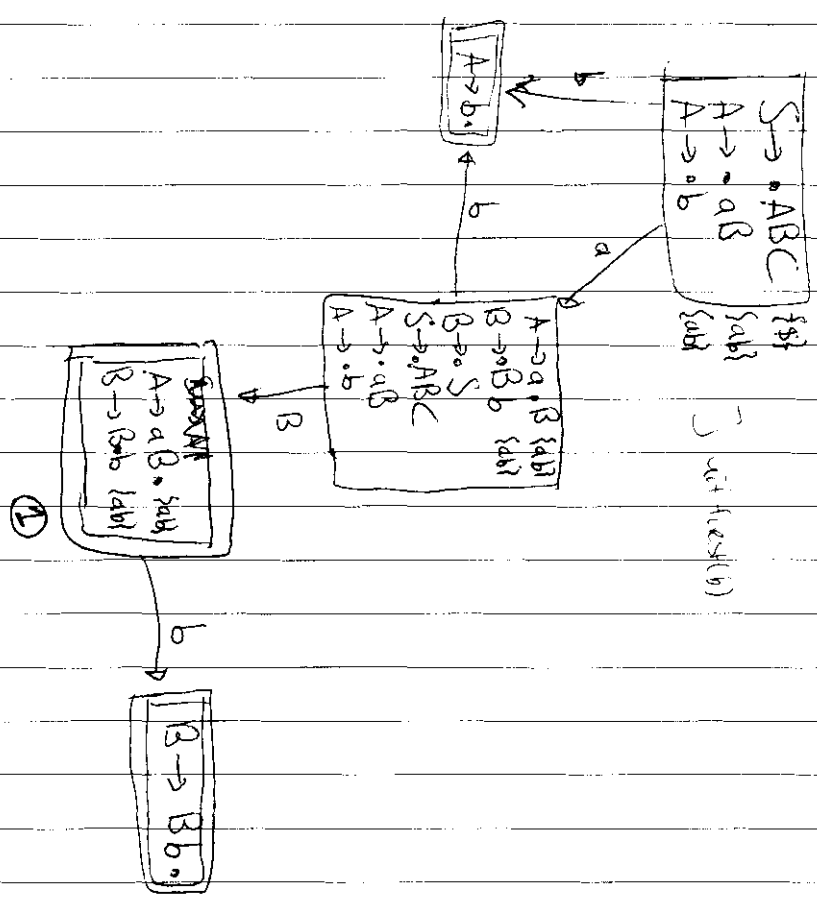 S→.ABC {$}
A→.aB {ab}
A→.b {ab}
b
A→b.
a
b
A→a.B {ab}
B→.Bb {ab}
B→.S
S→.ABC
A→.aB
A→.b
B
A→aB. {ab}
B→B.b {ab}
1
b
B→Bb.